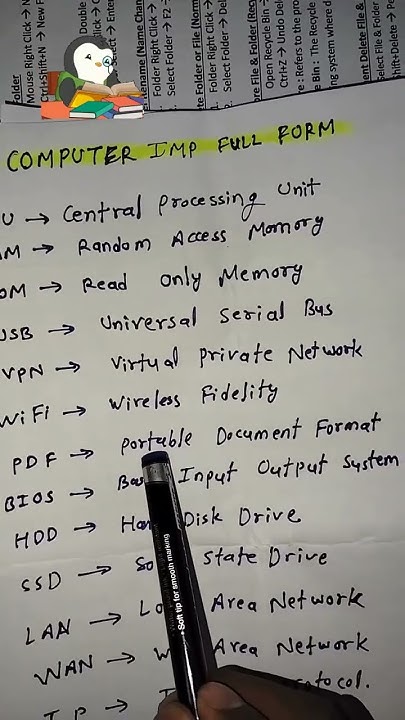 COMPUTER IMP FULL FORM
U → Central Processing Unit
AM → Random Access Momory
OM → Read Only Memory
USB → Universal Serial Bus
VPN → Virtual Private Network
WiFi → Wireless Fidelity
PDF → Portable Document Format
BIOS → Ba Input Output System
HDD → Ha Disk Drive
SSD → So State Drive
LAN → Lo Area Network
WAN → W Area Network
IP → I otocol.
Soft tip for smooth marking
older
Mouse Right Click → N
Ctrl+Shift+N → New F
Select → Enter
Rename (Name Chan
Folder Right Click →
Select Folder → F2 →
te Folder or File (Norm
Folder Right Click →
Select Folder → Del
ore File & Folder (Rec
Open Recycle Bin →
Ctrl+Z → Undo Del
re : Refers to the pro
e Bin : The Recycle
ng system where d
ent Delete File &
Select File & Folder
Shift+Delete → P